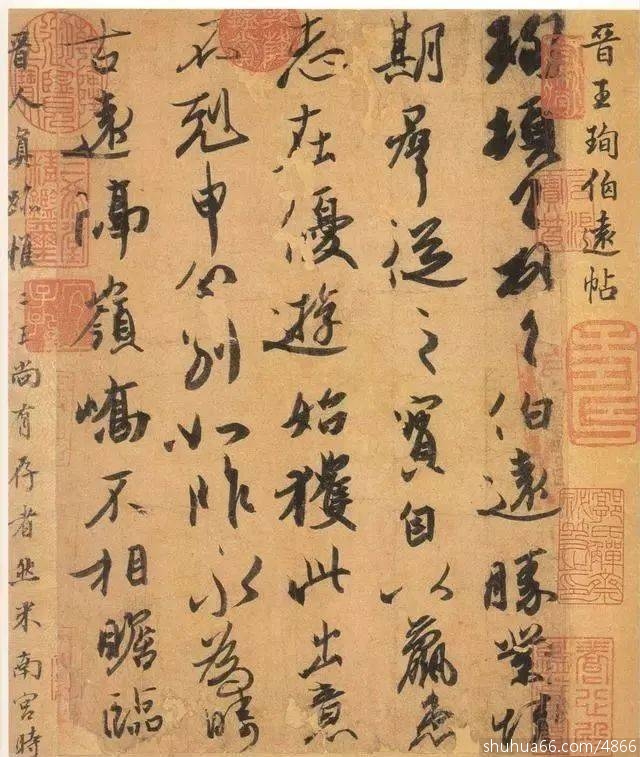 晉王珣伯遠帖
珣頓首頓首伯遠勝業情
期羣從之寶自以羸患
志在優遊始獲此出意
不剋申分別如昨永為疇
古遠隔嶺嶠不相瞻臨
晉人真跡惟二王尚有存者然米南宮時
shuhua66.com/4866